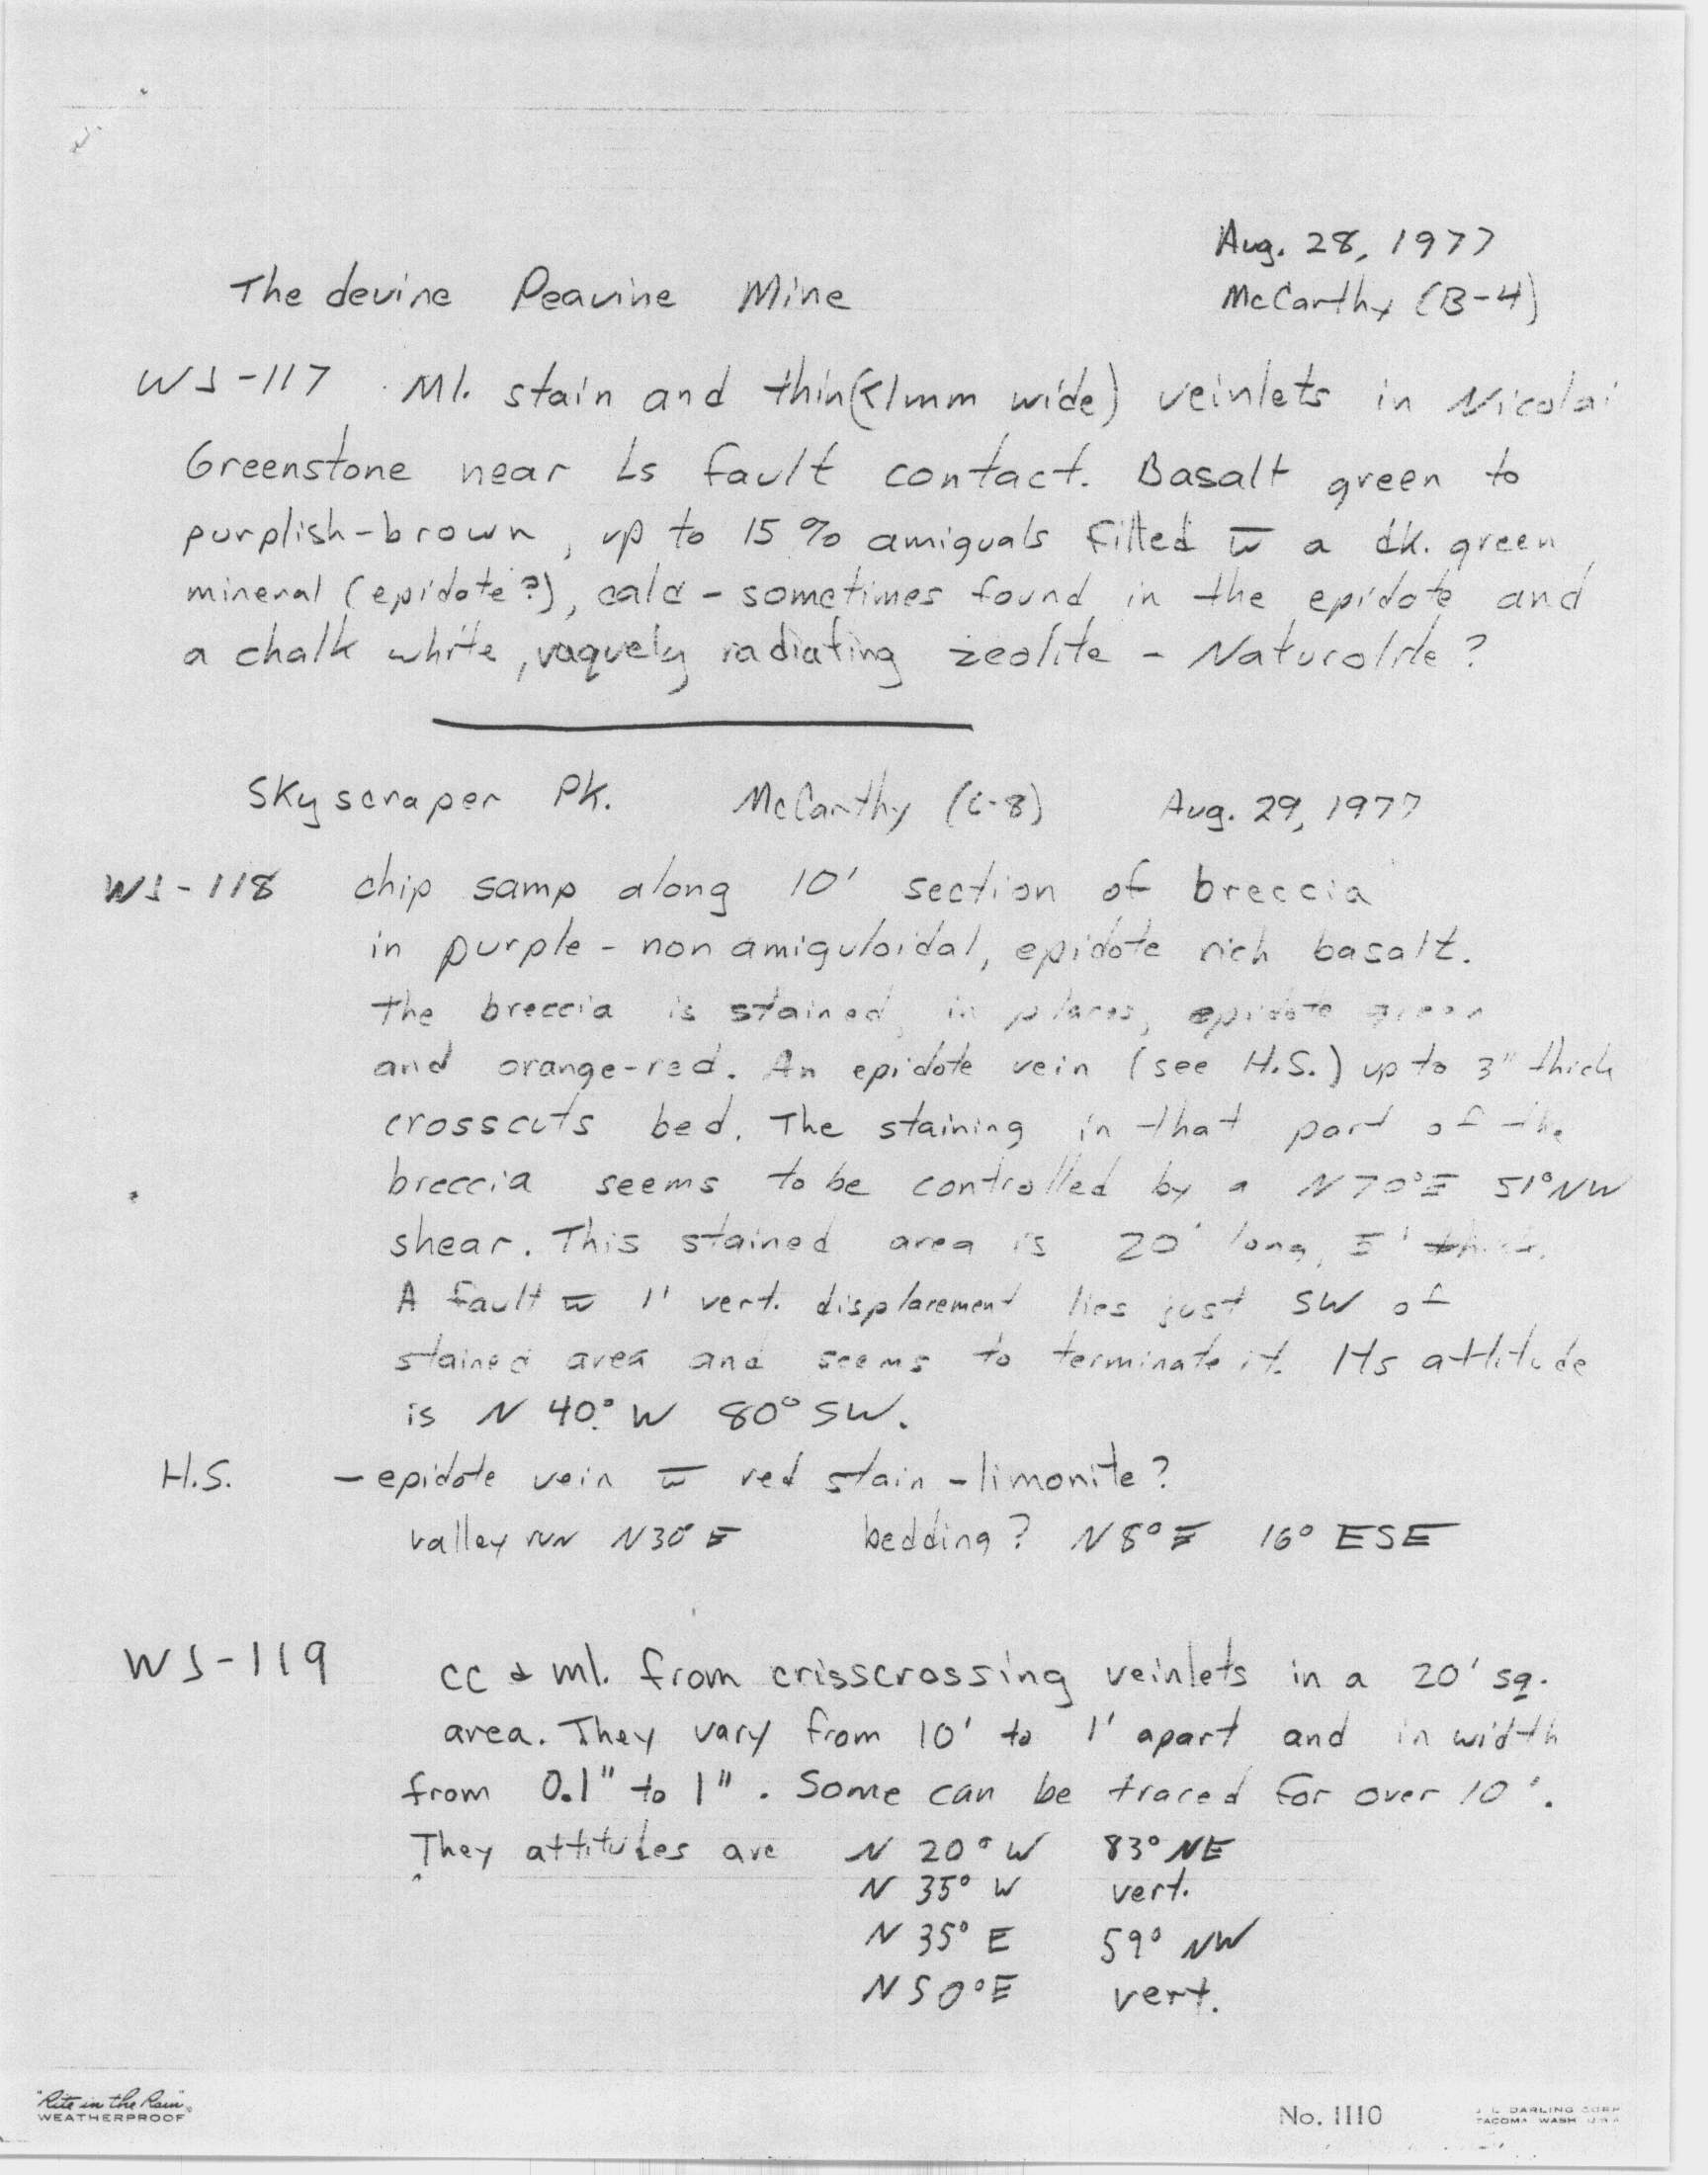 Aug. 28, 1977
The devine Peavine Mine
McCarthy (B-4)
WS-117 Ml. stain and thin (<1mm wide) veinlets in Nicolai
Greenstone near Ls fault contact. Basalt green to
purplish-brown, up to 15% amiguals filled w̅ a dk. green
mineral (epidote?), calc - sometimes found in the epidote and
a chalk white, vaguely radiating zeolite - Naturolite?
Skyscraper Pk. McCarthy (C-8) Aug. 29, 1977
WS-118 chip samp along 10' section of breccia
in purple - non amiguloidal, epidote rich basalt.
the breccia is stained, in places, epidote green
and orange-red. An epidote vein (see H.S.) up to 3" thick
crosscuts bed. The staining in that part of the
breccia seems to be controlled by a N70°E 51°NW
shear. This stained area is 20' long, 5' thick.
A fault w̅ 1' vert. displacement lies just SW of
stained area and seems to terminate it. Its attitude
is N 40° W 80° SW.
H.S. - epidote vein w̅ red stain - limonite?
valley run N30°E bedding? N8°E 16° ESE
WS-119 cc & ml. from crisscrossing veinlets in a 20' sq.
area. They vary from 10' to 1' apart and in width
from 0.1" to 1". Some can be traced for over 10'.
They attitudes are N 20° W 83° NE
N 35° W vert.
N 35° E 59° NW
N 50° E vert.
"Rite in the Rain"
WEATHERPROOF
No. 1110
J. L. DARLING CORP
TACOMA WASH U.S.A